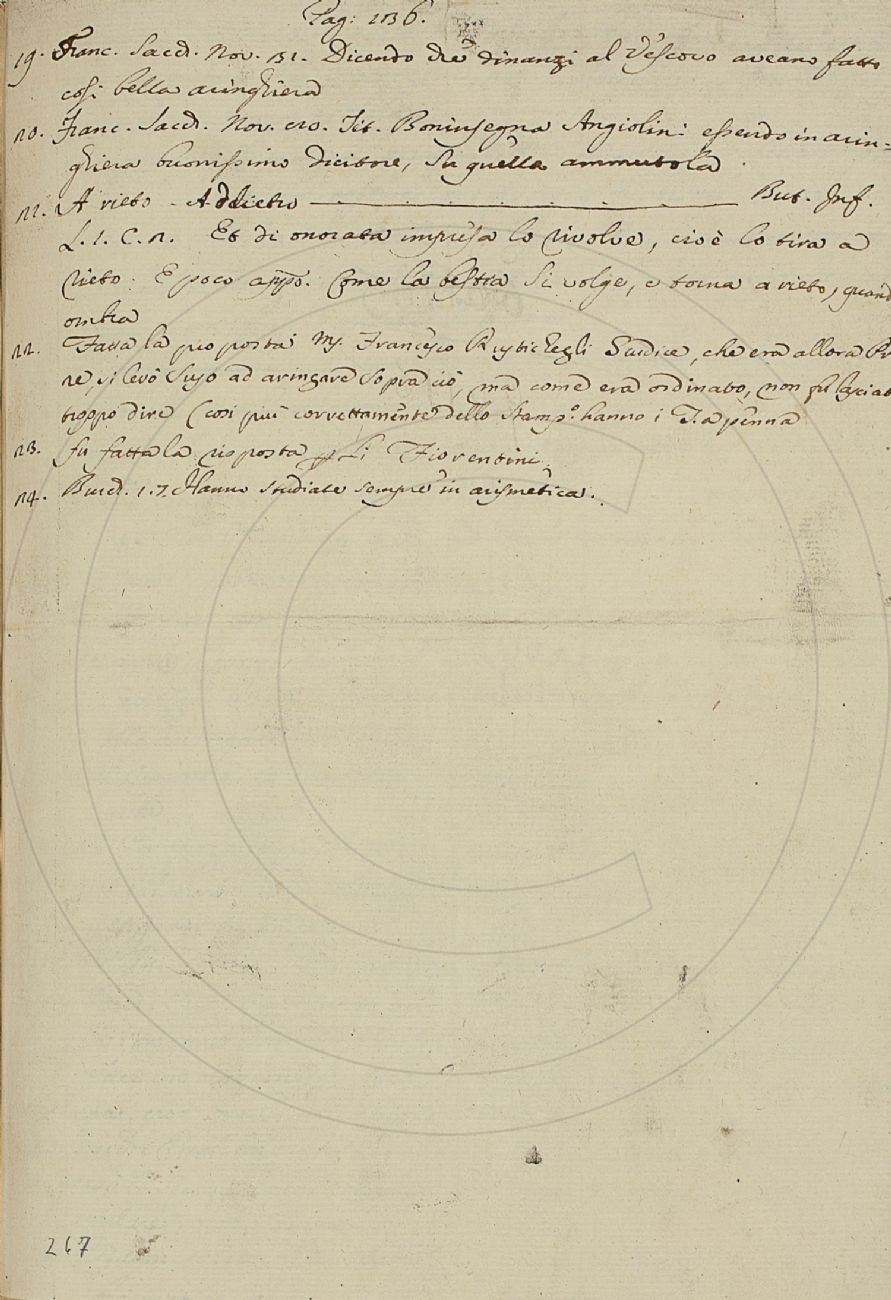 Pag: 236.
19. Franc. Sacch. Nov. 31. Dicendo che dinanzi al Vescovo aveano fatto
così bella aringhiera
20. Franc. Sacch. Nov. Tit. Boninsegna Angiolini essendo in arin=
ghiera buonissimo dicitore, su quella ammutola
21. A rieto - Addietro But. Inf.
L. 1. C. 2. Et di onorata impresa lo rivolve, cioè lo tira a
rieto: E poco appo. Come la bestia si volge, e torna a rieto, quand
ombra
22. Fatta la proposta Ms. Francesco Rustichegli Giudice, che era allora Pr
re, si levò suso ad aringare sopra ciò, ma come era ordinato, non fu lasciat
troppo dire (così più correttamente dello Stamp.º hanno i T. a penna
23. fu fatta la risposta Li Fiorentini
24. Burch. 1.7. Hanno studiate sempre in arismetica.
267